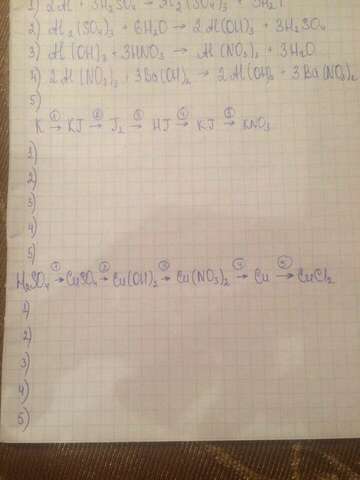 1) 2Al + 3H₂SO₄ → Al₂(SO₄)₃ + 3H₂↑
2) Al₂(SO₄)₃ + 6H₂O → 2Al(OH)₃ + 3H₂SO₄
3) Al(OH)₃ + 3HNO₃ → Al(NO₃)₃ + 3H₂O
4) 2Al(NO₃)₃ + 3Ba(OH)₂ → 2Al(OH)₃ + 3Ba(NO₃)₂
5)
K →① KJ →② J₂ →③ HJ →④ KJ →⑤ KNO₃
1)
2)
3)
4)
5)
H₂SO₄ →① CuSO₄ →② Cu(OH)₂ →③ Cu(NO₃)₂ →④ Cu →⑤ CuCl₂
1)
2)
3)
4)
5)